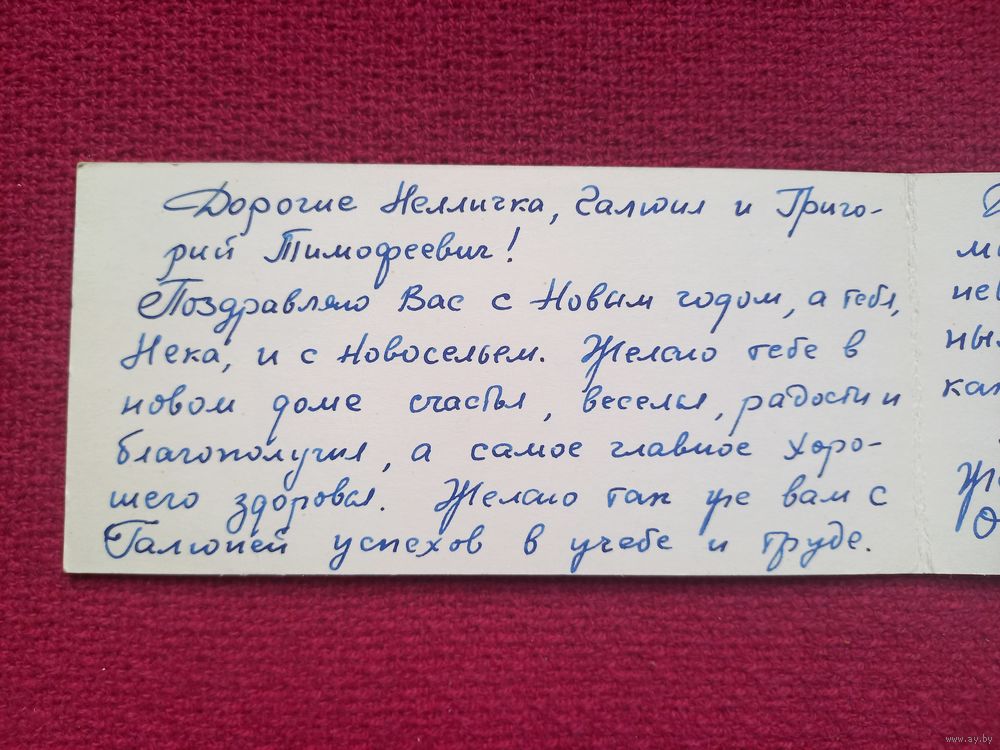 Дорогие Нелличка, Галюня и Григо-
рий Тимофеевич!
Поздравляю Вас с Новым годом, а тебя,
Нека, и с новосельем. Желаю тебе в
новом доме счастья, веселья, радости и
благополучия, а самое главное хоро-
шего здоровья. Желаю так же вам с
Галюней успехов в учебе и труде.
www.ay.by